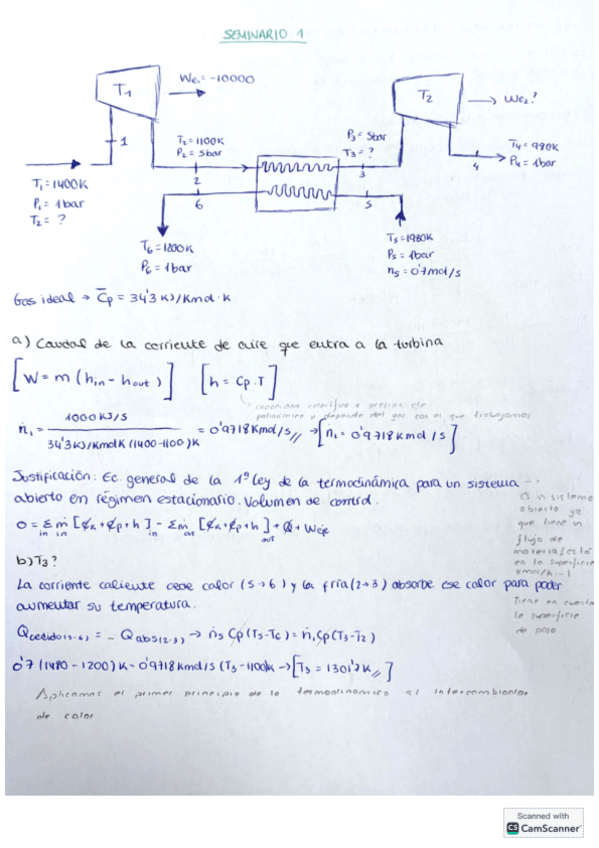 SEMINARIO 1
T1
We1 = -10000
T2
We2?
1
T2 = 1100K
P2 = 5bar
2
6
P3 = 5bar
T3 = ?
3
5
T4 = 990K
P4 = 1bar
4
T1 = 1400K
P1 = 1bar
T2 = ?
T6 = 1200K
P6 = 1bar
T5 = 1980K
P5 = 1bar
n5 = 0'7mol/s
Gas ideal → C̅p = 34'3 KJ/Kmol·K
a) Caudal de la corriente de aire que entra a la turbina
[W = m (hin - hout)] [h = Cp·T]
capacidad calorífica a presión cte
polinómica y depende del gas con el que trabajamos
ṅ1 = 1000 KJ/S / 34'3 KJ/KmolK (1400-1100)K = 0'9718 Kmol/s // → [ṅ1 = 0'9718 Kmol/s]
Justificación: Ec. general de la 1ª Ley de la termodinámica para un sistema
abierto en régimen estacionario. Volumen de control.
Es un sistema
abierto ya
que tiene un
flujo de
materia
en la superficie
0 = Σ ṁ [ek + ep + h] - Σ ṁ [ek + ep + h] + Q + Weje
in in out out
b) T3?
La corriente caliente cede calor (5→6) y la fría (2→3) absorbe ese calor para poder
aumentar su temperatura.
Tiene en cuenta
la superficie
de paso
Qcedido(5-6) = - Qabs(2-3) → ṅ5 Cp(T5-T6) = ṅ1 Cp(T3-T2)
0'7 (1480 - 1200) K = 0'9718 kmol/s (T3 - 1100)K → [T3 = 1301'7K //]
Aplicamos el primer principio de la termodinámica al intercambiador
de calor
Scanned with
CS CamScanner